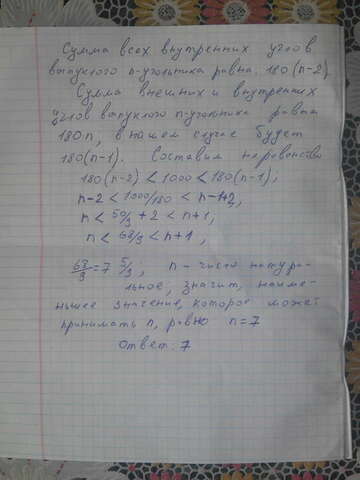 Сумма всех внутренних углов
выпуклого n-угольника равна. 180(n-2)
Сумма внешних и внутренних
углов выпуклого n-угольника равна
180n, в нашем случае будет
180(n-1). Составим неравенство
180(n-2) < 1000 < 180(n-1);
n-2 < 1000/180 < n-1+2,
n < 50/9 + 2 < n+1,
n < 68/9 < n+1,
68/9 = 7 5/9; n - число натура-
льное, значит, наиме-
ньшее значение, которое может
принимать n, равно n=7
Ответ: 7